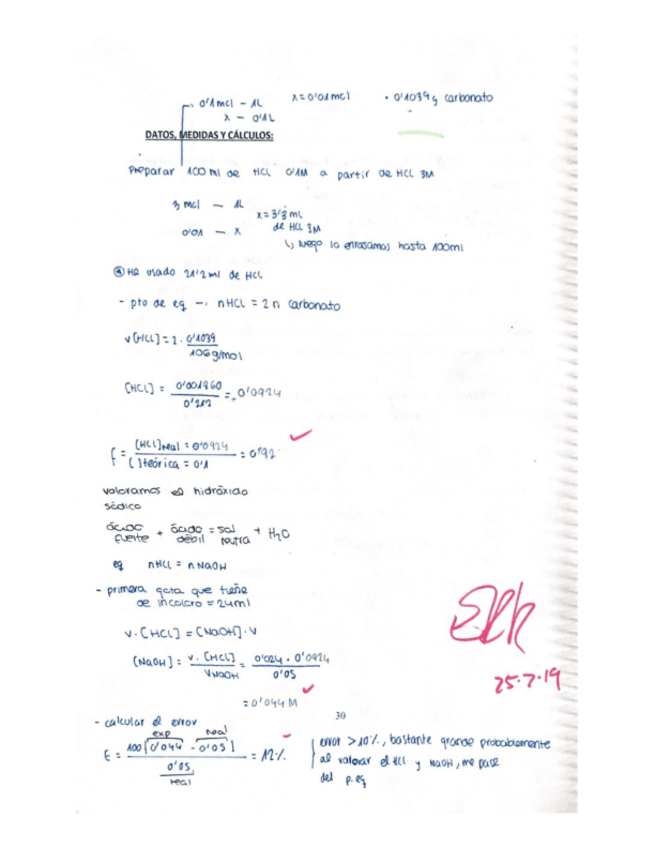 0'1 mol - 1L    x = 0'01 mol    • 0'1039 g carbonato
x - 0'1L
DATOS, MEDIDAS Y CÁLCULOS:
Preparar 100 ml de HCl 0'1M a partir de HCl 3M
3 mol - 1L
x = 3'3 ml
de HCl 3M
0'01 - x
↳ luego lo enrasamos hasta 100 ml
He usado 21'2 ml de HCl
- pto de eq → nHCl = 2 n carbonato
V [HCl] = 2 · 0'1039
106 g/mol
[HCl] = 0'001960 = 0'0924
0'212
f = [HCl]real = 0'0924 = 0'92
[ ]teórica = 0'1
valoramos el hidróxido
sódico
ácido fuerte + ácido débil = sal neutra + H2O
eq    nHCl = n NaOH
- primera gota que tiñe
de incoloro = 24 ml
V · [HCl] = [NaOH] · V
[NaOH] = V · [HCl] = 0'024 · 0'0924
V NaOH    0'05
= 0'044 M
30
25-2-19
- calcular el error
exp    real
E = 100 |0'044 - 0'05| = 12%
0'05
real
error > 10%, bastante grande probablemente
al valorar el HCl y NaOH, me pase
del p. eq